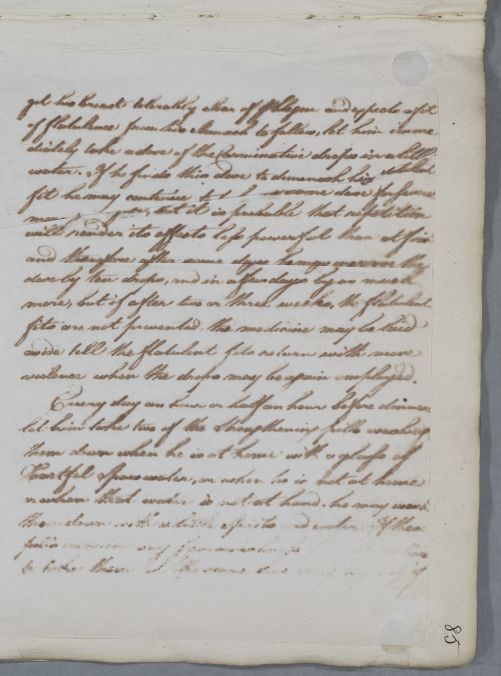 get his breast tolerably clear of Phlegm and expects a fit
of flatulence from his stomach to follow, let him imme
diately take a dose of the Carminative drops in a little
water. If he finds this dose to diminish his flatulent
fit he may continue dose for
may but it is probable that repetition
will render its effects less powerful than at first
and therefore after some days he may the
dose by ten drops, and in a few days by as much
more, but if after two or three weeks, the flatulent
fits are not prevented, the medicine may be laid
aside till the flatulent fits return with more
violence when the drops may be again employed.
Every day an hour or half an hour before dinner
let him take two of the Strengthening pills washing
them down when he is at home with a glass of
Hartfel Spaw water, or when he is not at home
or when that water is not at hand, he may wash
them down with a little spirits and water. If these
pills occasion any
to take them
85